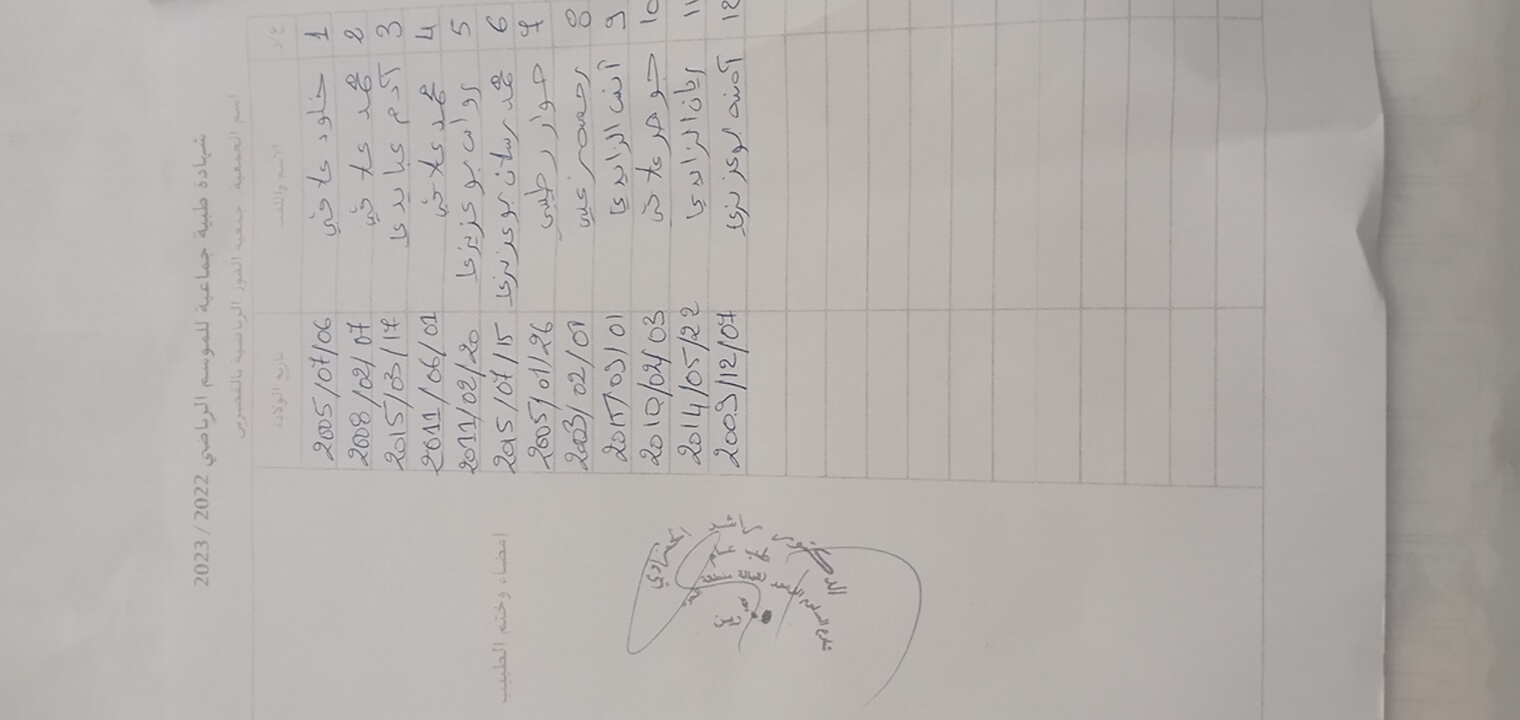 شهادة طبية جماعية للموسم الرياضي 2022 / 2023
اسم الجمعية جمعية الفوز الرياضية بالقصرين
ع/د الاسم واللقب تاريخ الولادة
1 خلود علاقي 2005/07/06
2 محمد علاقي 2008/02/07
3 آدم عبايدي 2015/03/17
4 محمد علاقي 2011/06/01
5 روان بوعزيزي 2011/02/20
6 محمد رسلان بوعزيزي 2015/07/15
7 2005/01/26
8 2003/02/01
9 أنس الزايدي 2015/09/01
10 جوهر علاقي 2010/04/03
11 ريان الزايدي 2014/05/22
12 آمنة بوعزيزي 2009/12/07
إمضاء وختم الطبيب
الدكتور